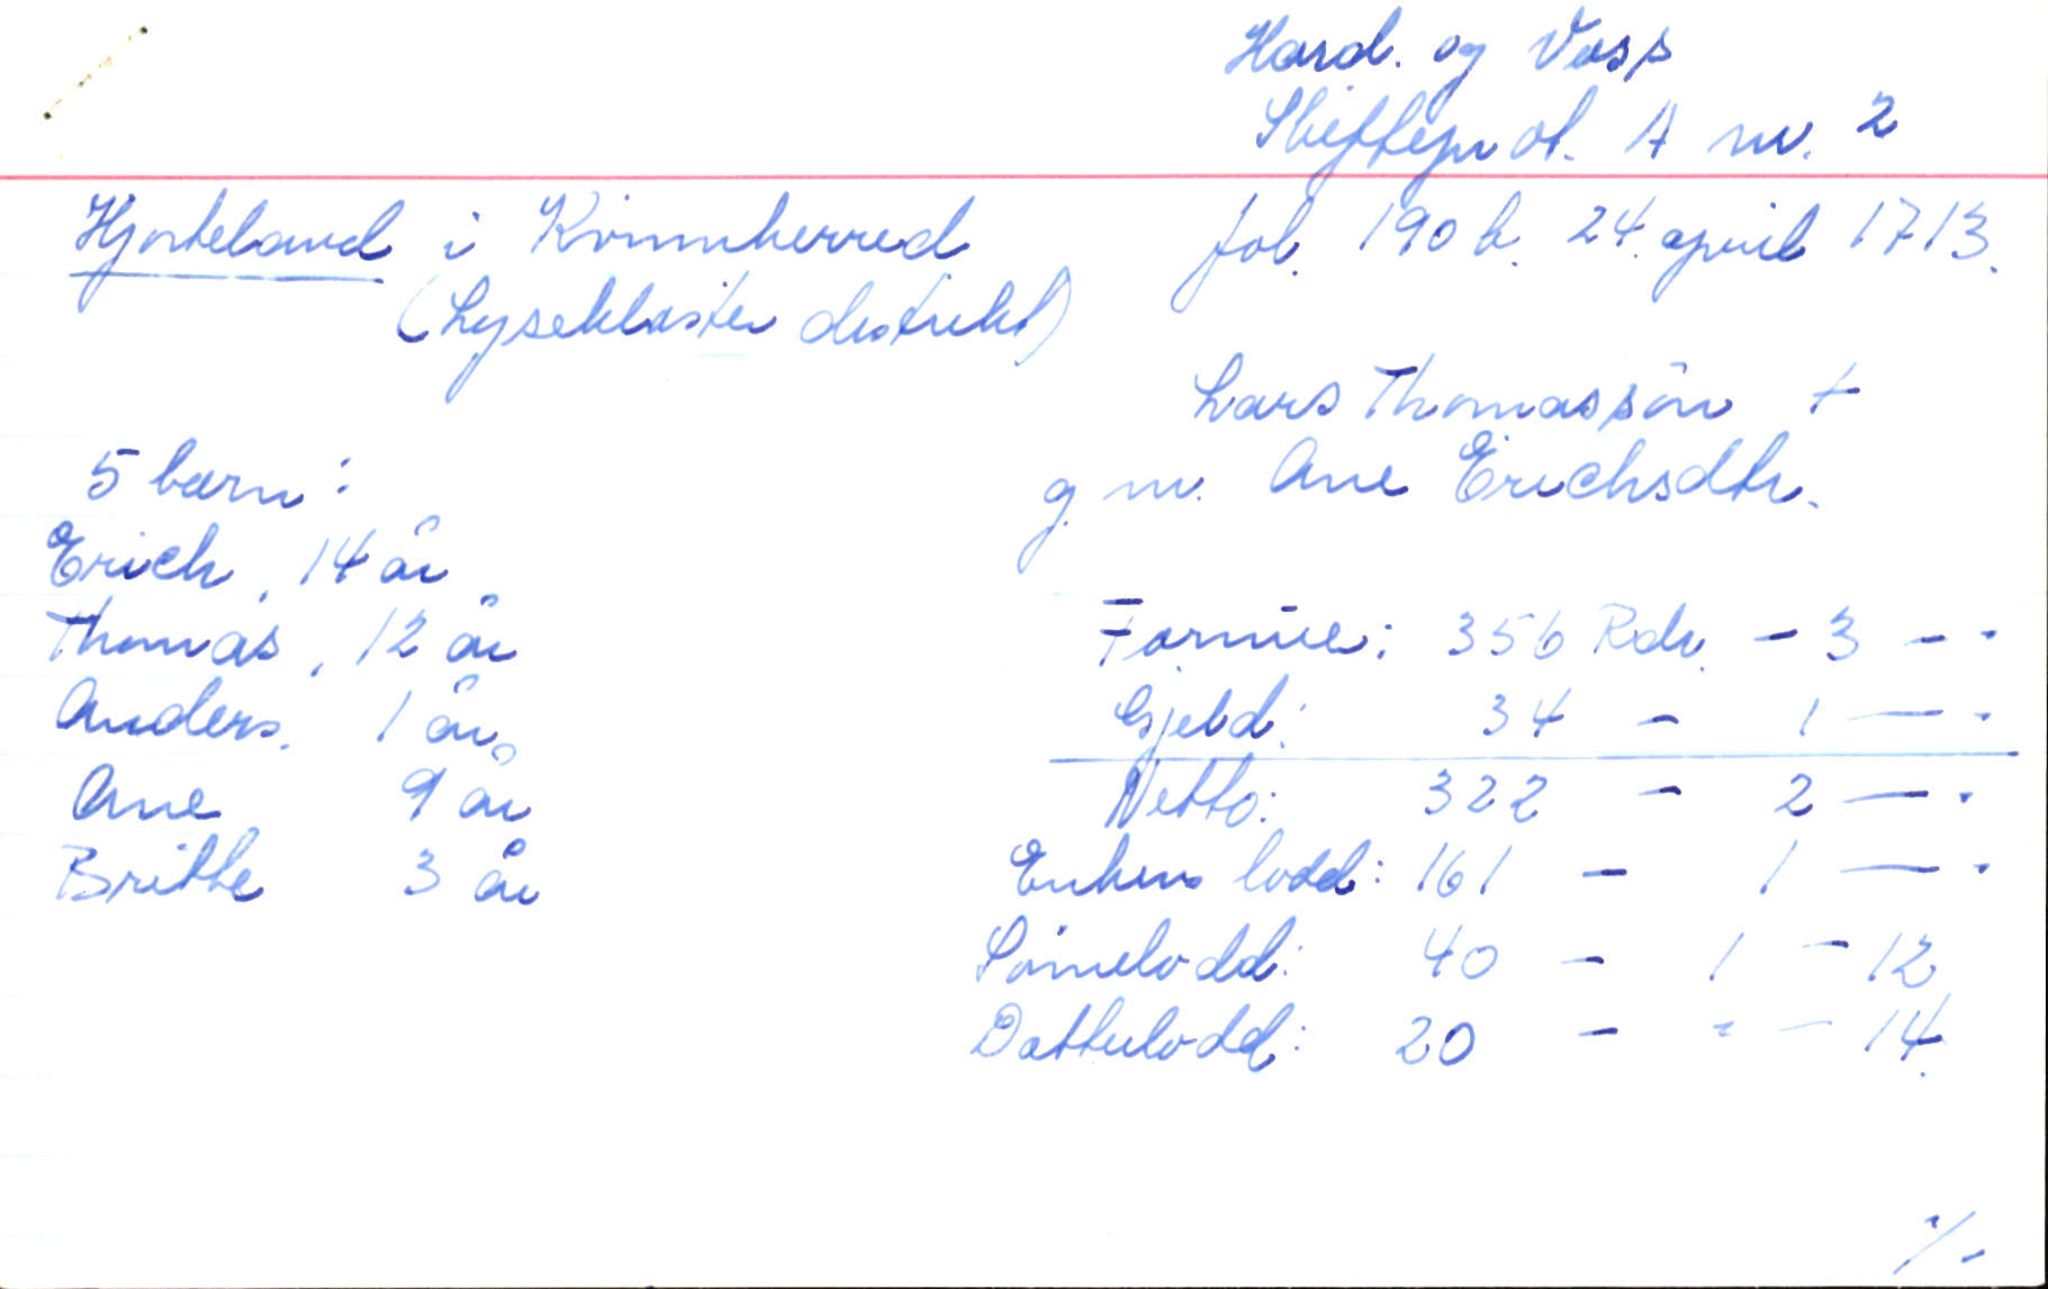 Hard. og Voss
Skifteprot. A nr. 2
Hjorteland i Kvinnherred
fol. 190 b. 24. april 1713.
(Lysekloster distrikt)
Lars Thomassön +
g. m. Ane Erichsdtr.
5 barn:
Erich, 14 år
Thomas, 12 år
Anders. 1 år
Ane 9 år
Britte 3 år
Formue: 356 Rdr. - 3 - -
Gjeld: 34 - 1 - -
Netto: 322 - 2 - -
Enkens lodd: 161 - 1 - -
Sönnelodd: 40 - 1 - 12
Datterlodd: 20 - - - 14.
./.